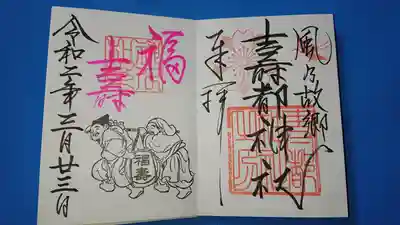 風乃故郷へ
壽都神社
奉拝
福
壽
令和二年三月廿三日
福壽